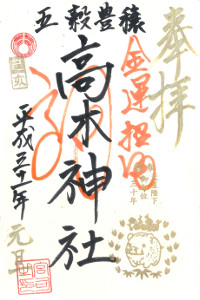 五穀豊穣
奉拝
金運招福
高木神社
平成三十一年
元旦